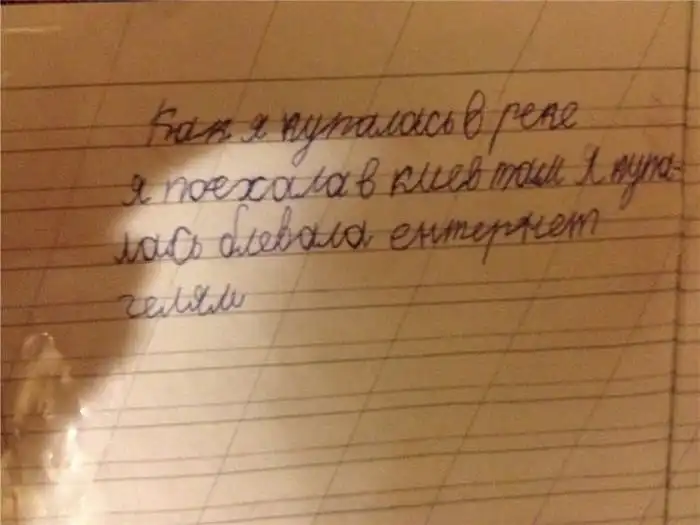 Как я купалась в реке
я поехала в киев там я купа-
лась блевала ентернет
гелям